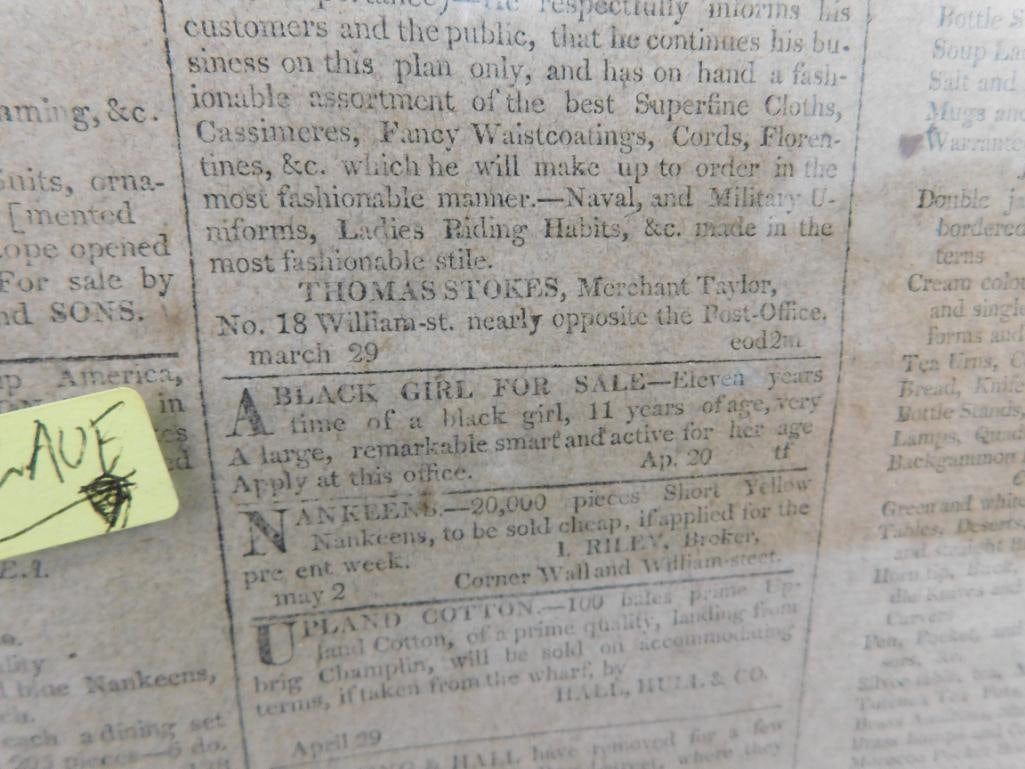 respectfully informs his
customers and the public, that he continues his bu-
siness on this plan only, and has on hand a fash-
ionable assortment of the best Superfine Cloths,
Cassimeres, Fancy Waistcoatings, Cords, Floren-
tines, &c. which he will make up to order in the
most fashionable manner.—Naval, and Military U-
niforms, Ladies Riding Habits, &c. made in the
most fashionable stile.
THOMAS STOKES, Merchant Taylor,
No. 18 William-st. nearly opposite the Post-Office.
march 29 eod2m
A BLACK GIRL FOR SALE—Eleven years
time of a black girl, 11 years of age, very
A large, remarkable smart and active for her age
Apply at this office. Ap. 20 tf
NANKEENS.—20,000 pieces Short Yellow
Nankeens, to be sold cheap, if applied for the
pre ent week. I. RILEY, Broker,
may 2 Corner Wall and William-steet.
UPLAND COTTON.—100 bales prime Up-
land Cotton, of a prime quality, landing from
brig Champlin, will be sold on accommodating
terms, if taken from the wharf, by
HALL, HULL & CO.
April 29
& HALL have removed for a few
street, where they
aming, &c.
Suits, orna-
[mented
ope opened
For sale by
nd SONS.
up America,
in
LAVE
E.I.
blue Nankeens,
each a dining set
6 do.
Bottle S
Soup La
Salt and
Mugs and
Warrante
Double
bordered
terns
Cream colou
and single
forms and
Tea Urns, C
Bread, Knife
Bottle Stands,
Lamps, Quad
Backgammon
Green and white
Tables, Deserts,
and straight B
Horn tip, Buck,
dle Knives and
Carvers
Pen, Pocket, and